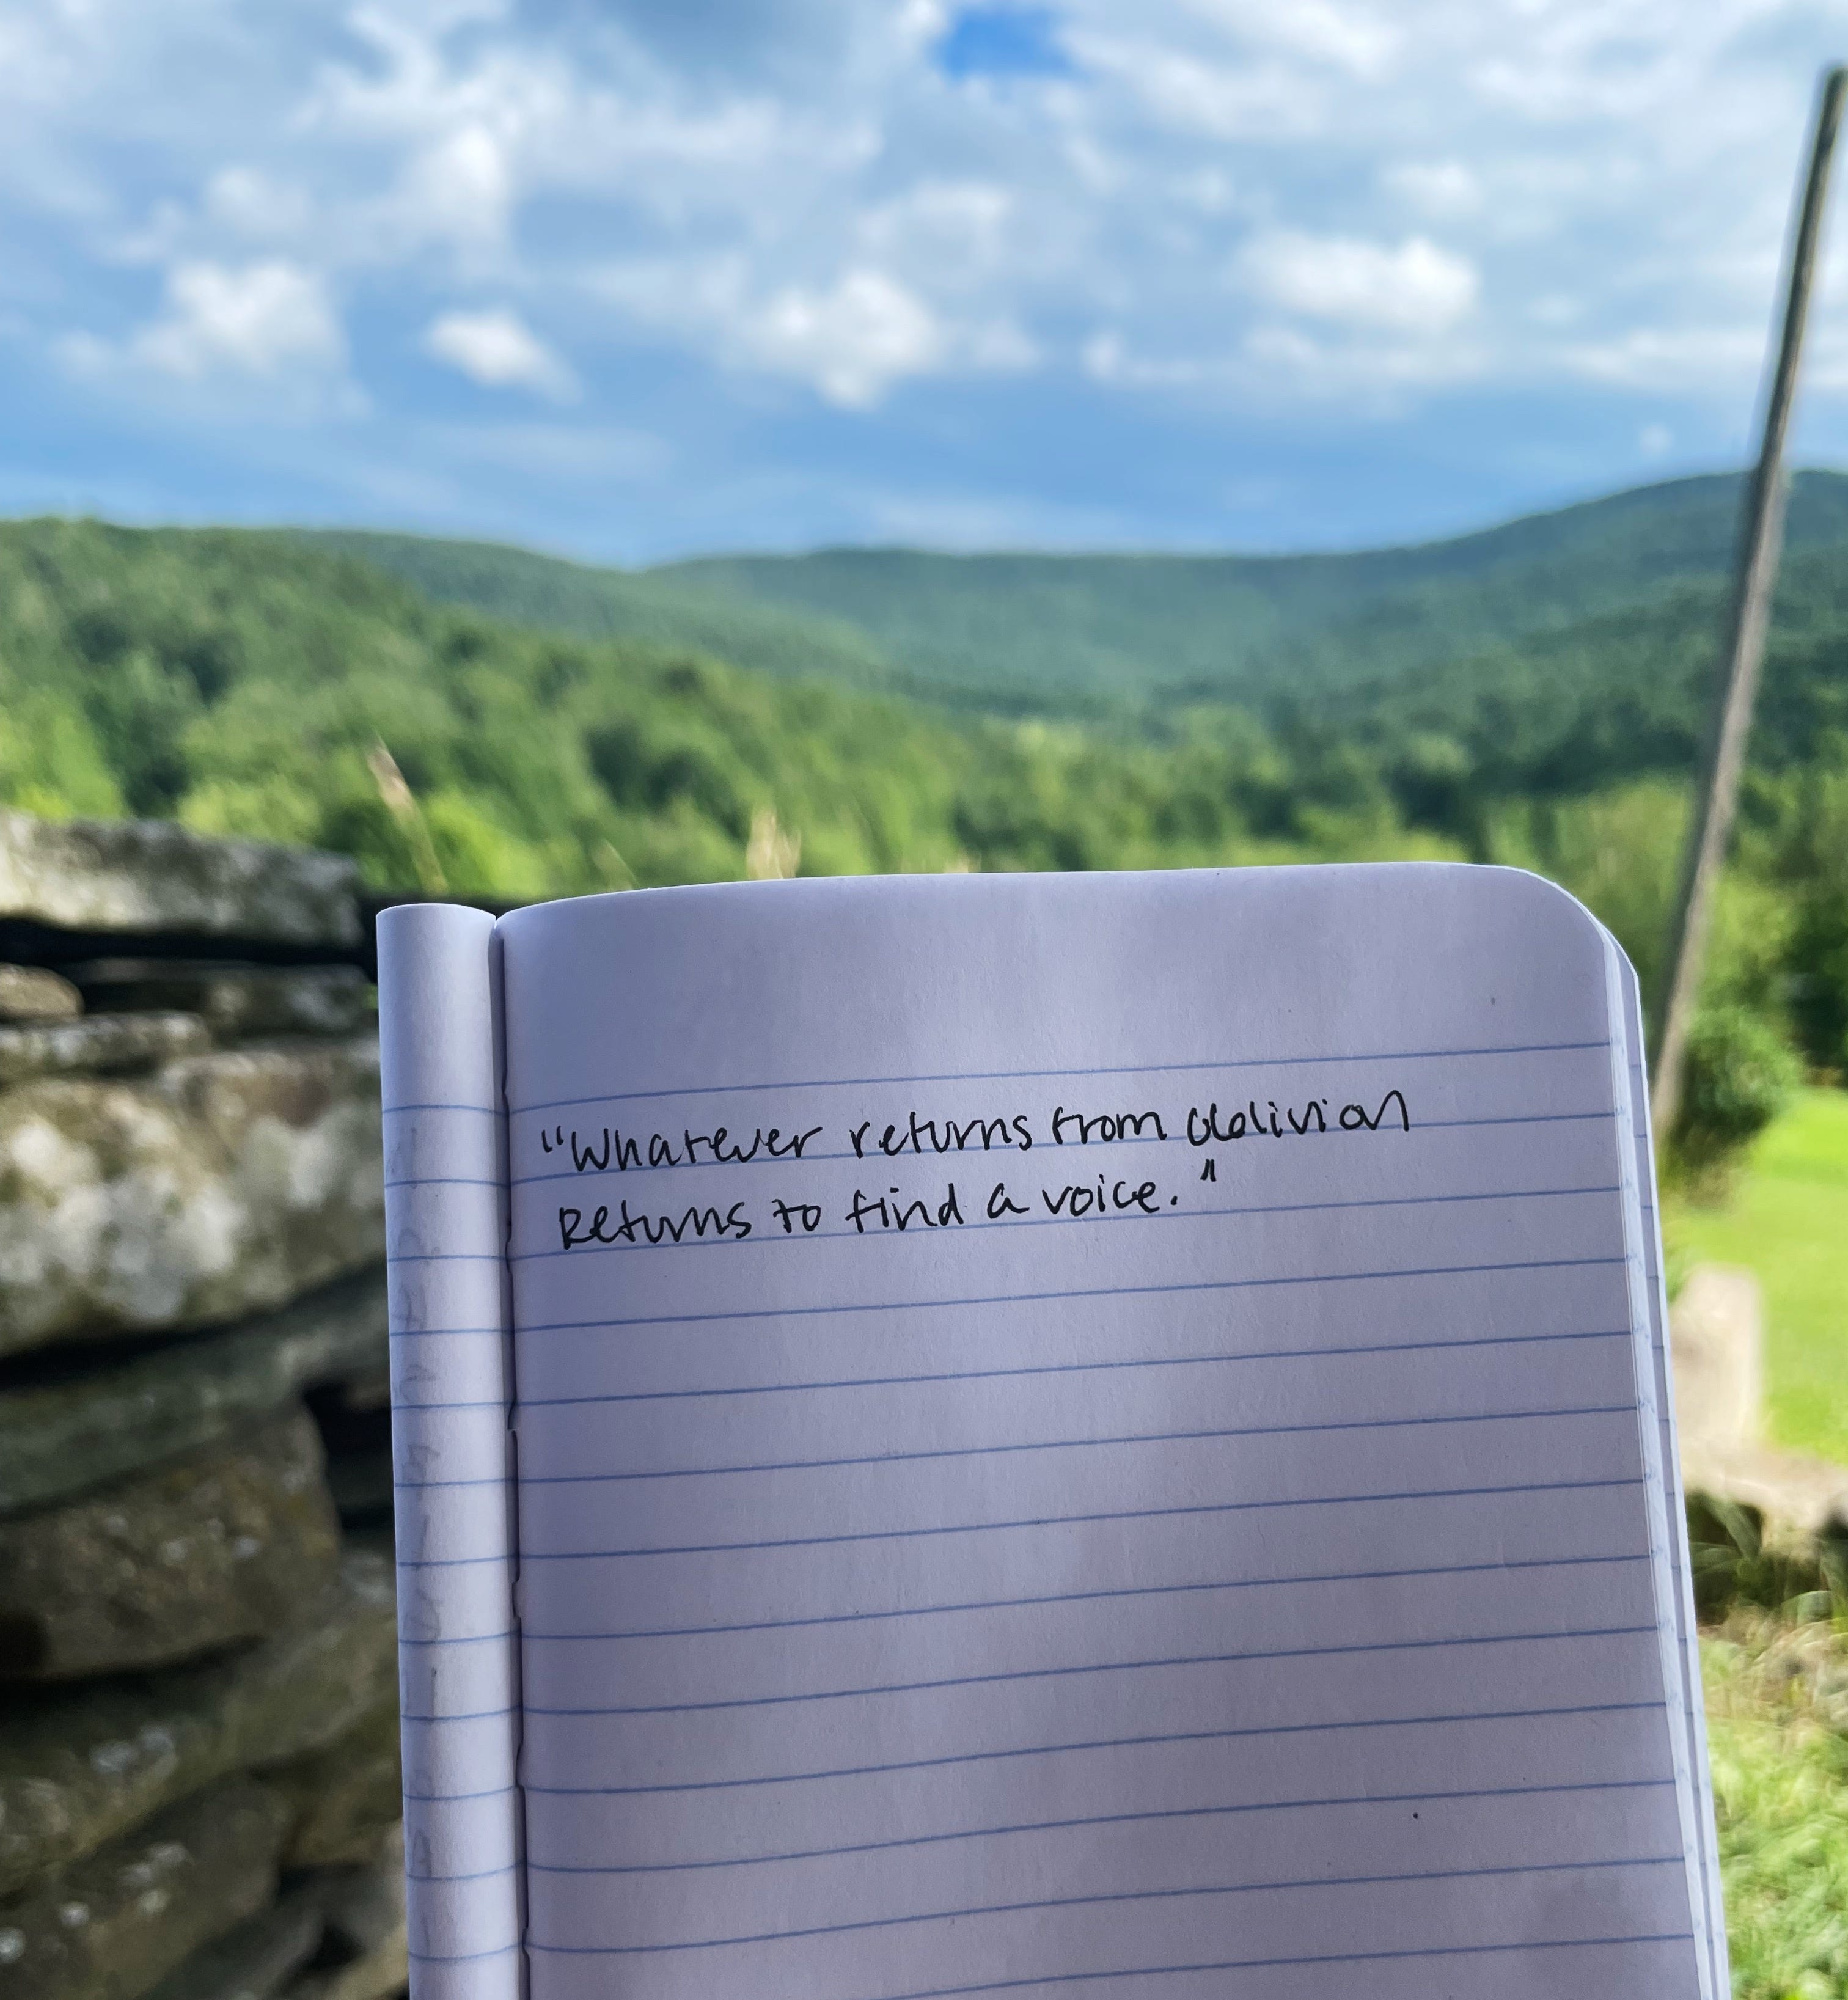 "Whatever returns from oblivion
Returns to find a voice."